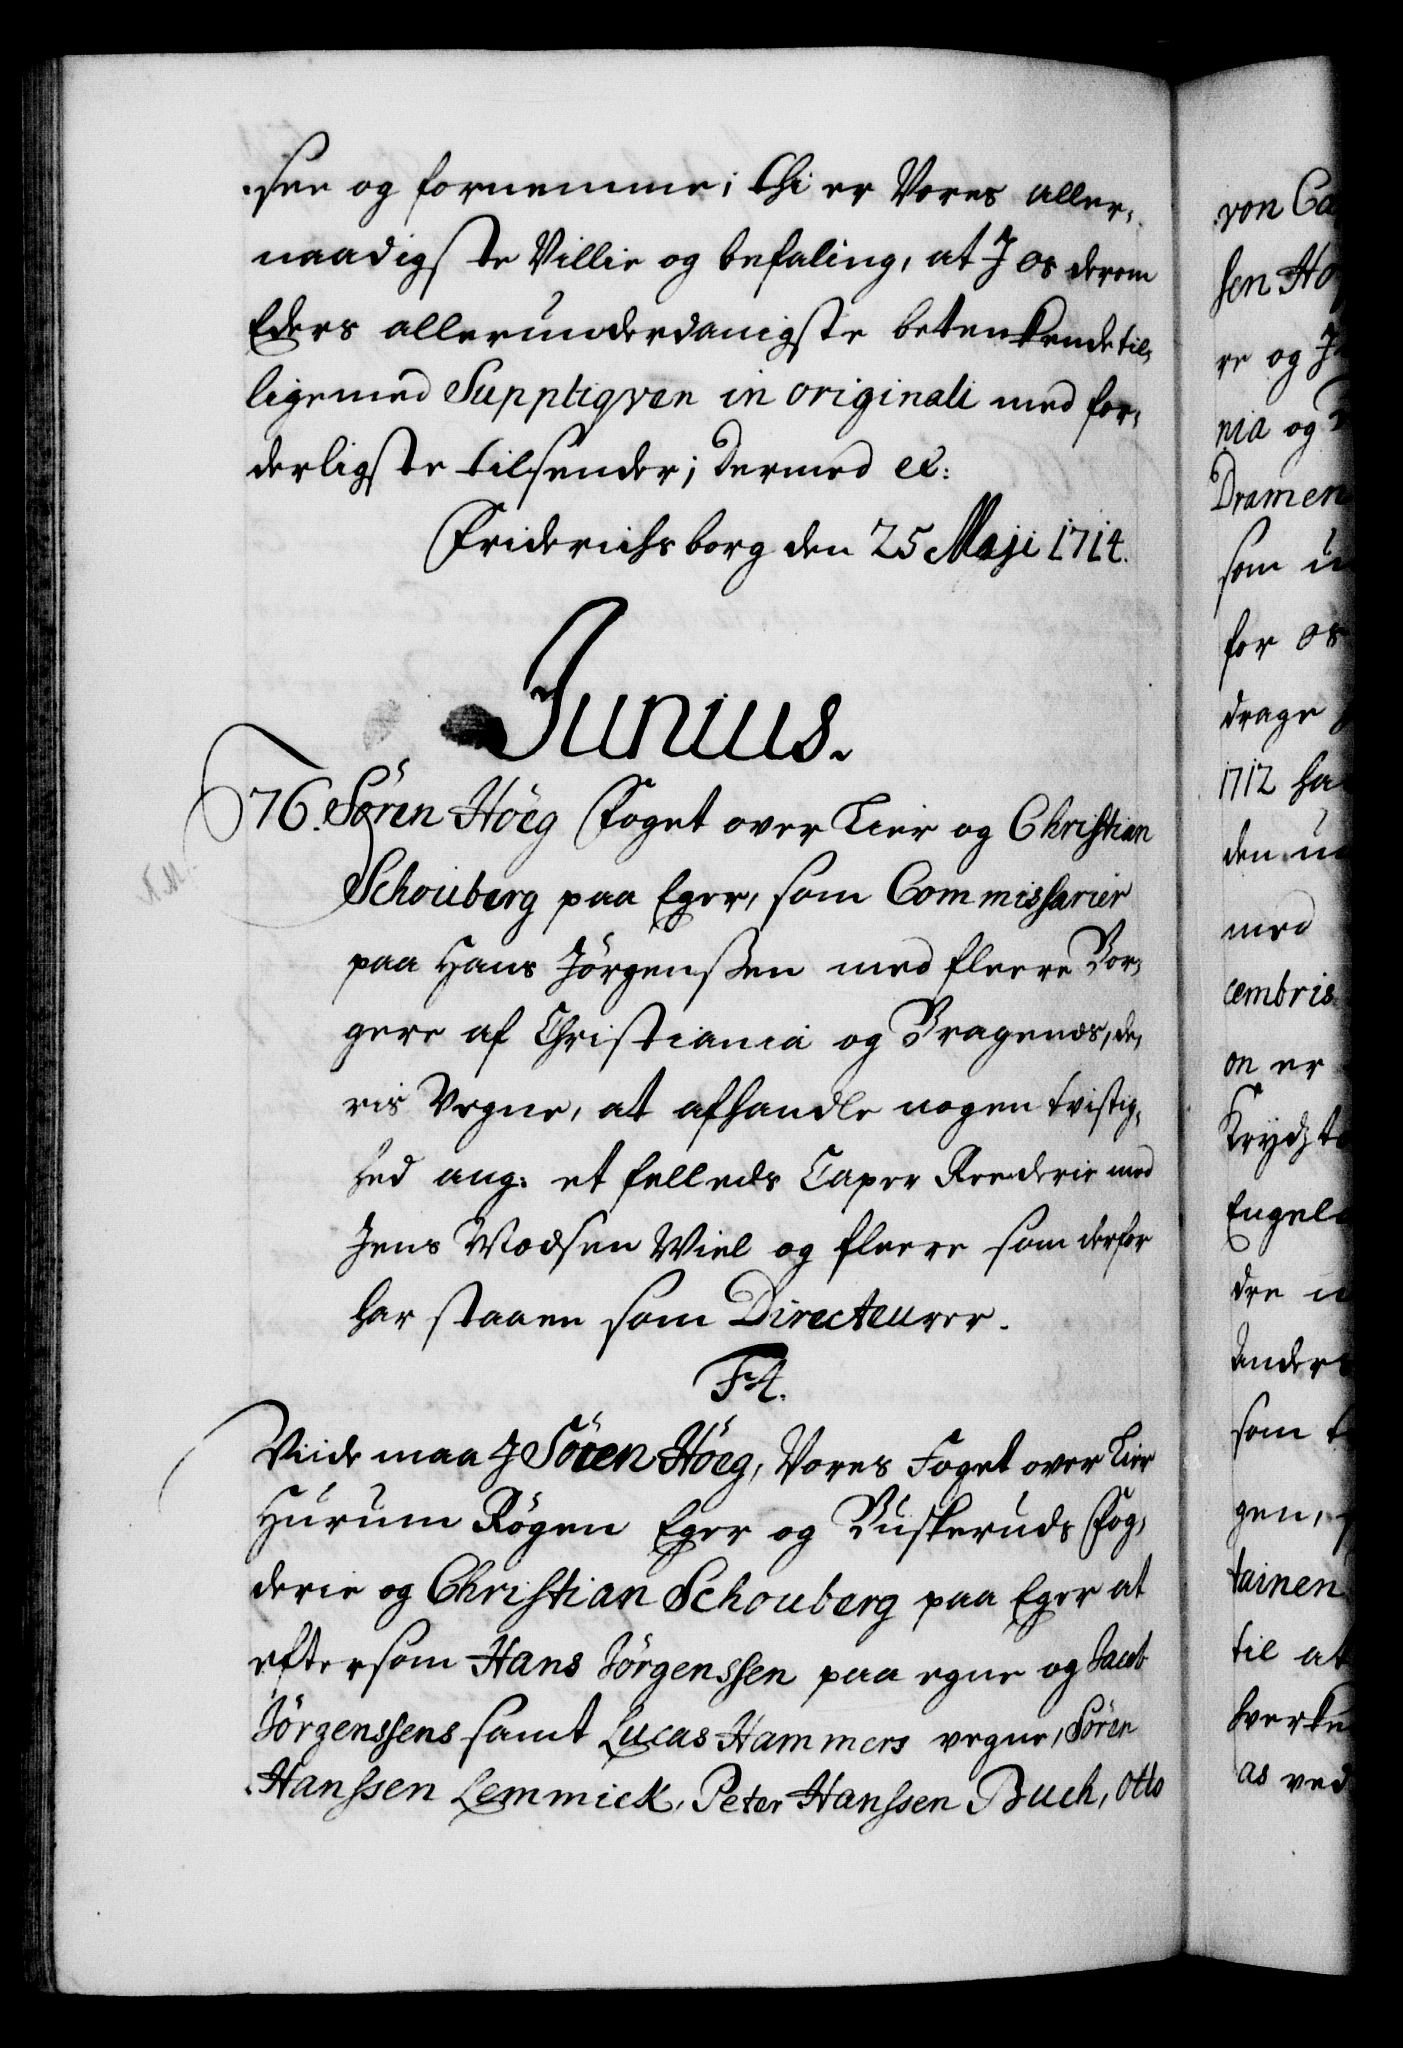 see og fornemme; thi er Vores aller-
naadigste Villie og befaling, at I os derom
Eders allerunderdanigste betenkende til-
ligemed Suppliqven in originali med for-
derligste tilsender; dermed etc:
Friderichsborg den 25 Maji 1714.
Junius.
76. Sören Höeg Foget over Lier og Christian
N.M.
Schouberg paa Eger, som Commissarier
paa Hans Jörgenssen med fleere Bor-
gere af Christiania og Bragenæs, de-
ris Vegne, at afhandle nogen tvistig-
hed ang: et felleds Caper Rederie med
Jens Madsen Wiel og fleere som derfor
har staaen som Directeurer.
F4.
Viide maa I Sören Höeg, Vores Foget over Lier
Hurum Rögen Eger og Buskeruds Fog-
derie og Christian Schouberg paa Eger at
eftersom Hans Jörgenssen paa egne og Jacob
Jörgenssens samt Lucas Hammers vegne, Sören
Hanssen Lemmick, Peter Hanssen Buch, Otto
von Ca
sen Hö
re og J
nia og
Dramen
som u
for os
drage
1712 ha
den u
med
cembris
on er
Krydzt
Engel
dre
Anders
som
gen,
tainen
til at
hverke
as ved